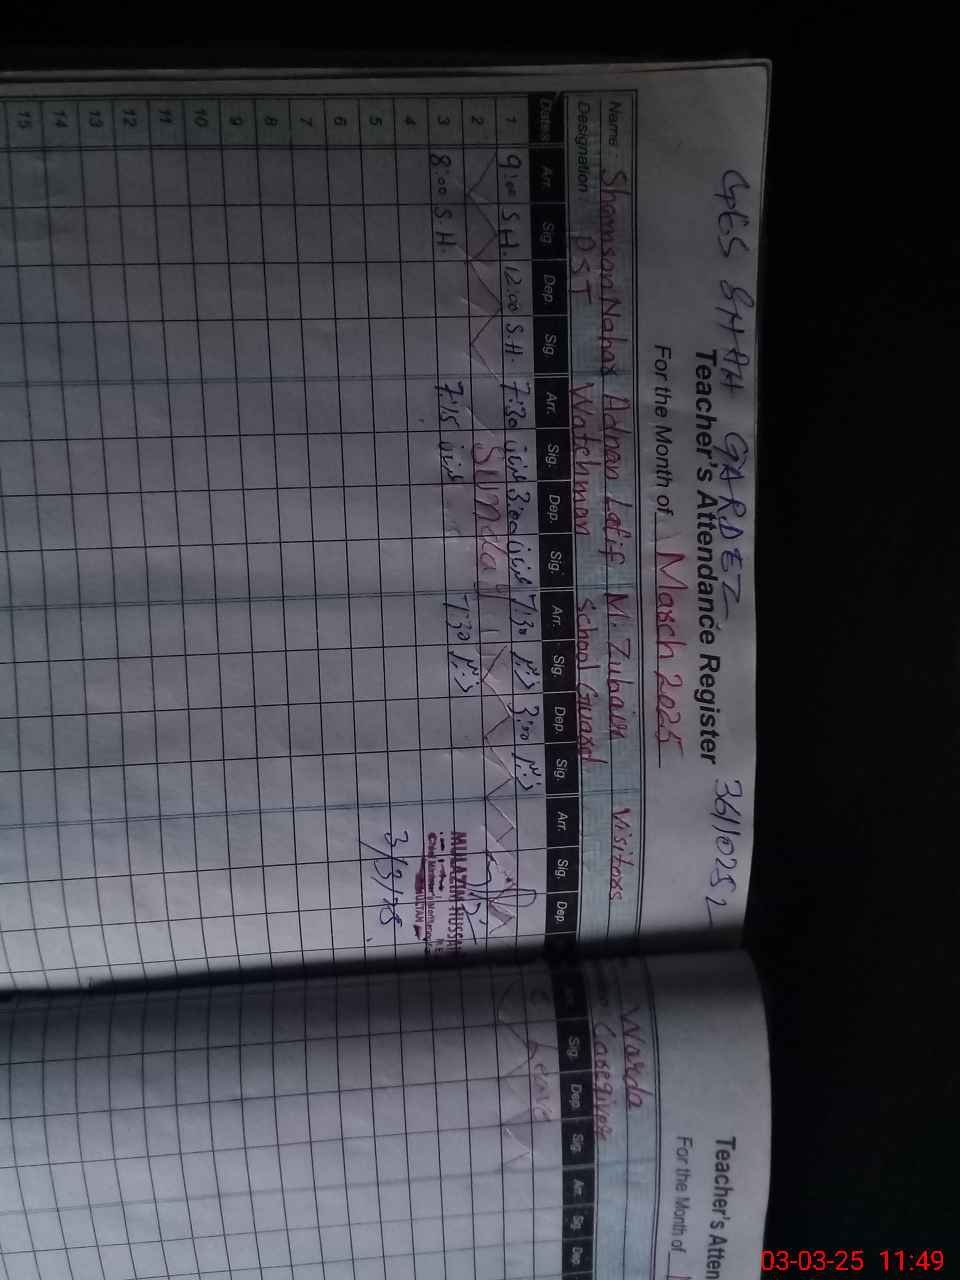 GGES SHAH GARDEZ 36110252
Teacher's Attendance Register
For the Month of March 2025
Name: Shamson Nahar Adnan Latif M. Zubair Visitors
Designation: PST Watchman School Guard
Dates Arr. Sig. Dep. Sig. Arr. Sig. Dep. Sig. Arr. Sig. Dep. Sig. Arr. Sig. Dep.
1 9:00 S.H. 12:00 S.H. 7:30 3:00 7:30 زبیر 3:00 زبیر
2 Sunday
3 8:00 S.H. 7:15 7:30 زبیر
MULAZIM HUSSAIN
MULTAN
4
3/3/25
5
6
7
8
9
10
11
12
13
14
15
Teacher's Atten
For the Month of
Warda
Caregiver
Sig. Dep. Sig. Arr. Sig. Dep.
Leave
03-03-25 11:49